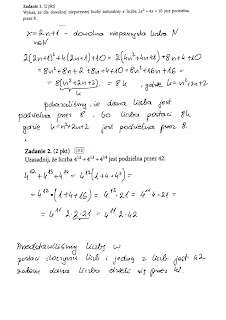 Zadanie 1. (2 pkt)
Wykaż, że dla dowolnej nieparzystej liczby naturalnej x liczba 2x² + 4x + 10 jest podzielna
przez 8.
x = 2n+1 - dowolna nieparzysta liczba N
n∈N
2(2n+1)² + 4(2n+1) + 10 = 2(4n²+4n+1) + 8n+4+10
= 8n²+8n+2+8n+4+10 = 8n²+16n+16 =
= 8(n²+2n+2) = 8k , gdzie k = n²+2n+2
k
pokazaliśmy, że dana liczba jest
podzielna przez 8 , bo liczba postaci 8k
gdzie k = n²+2n+2 jest podzielna przez 8.
Zadanie 2. (2 pkt)
Uzasadnij, że liczba 4¹² + 4¹³ + 4¹⁴ jest podzielna przez 42.
4¹² + 4¹³ + 4¹⁴ = 4¹² (1+4+4²) =
= 4¹² · (1+4+16) = 4¹² · 21 = 4¹¹ · 4 · 21 =
= 4¹¹ · 2 · 2 · 21 = 4¹¹ · 2 · 42
Przedstawiliśmy liczbę w
postaci iloczynu liczb i jedną z liczb jest 42
zatem dana liczba dzieli się przez 42.